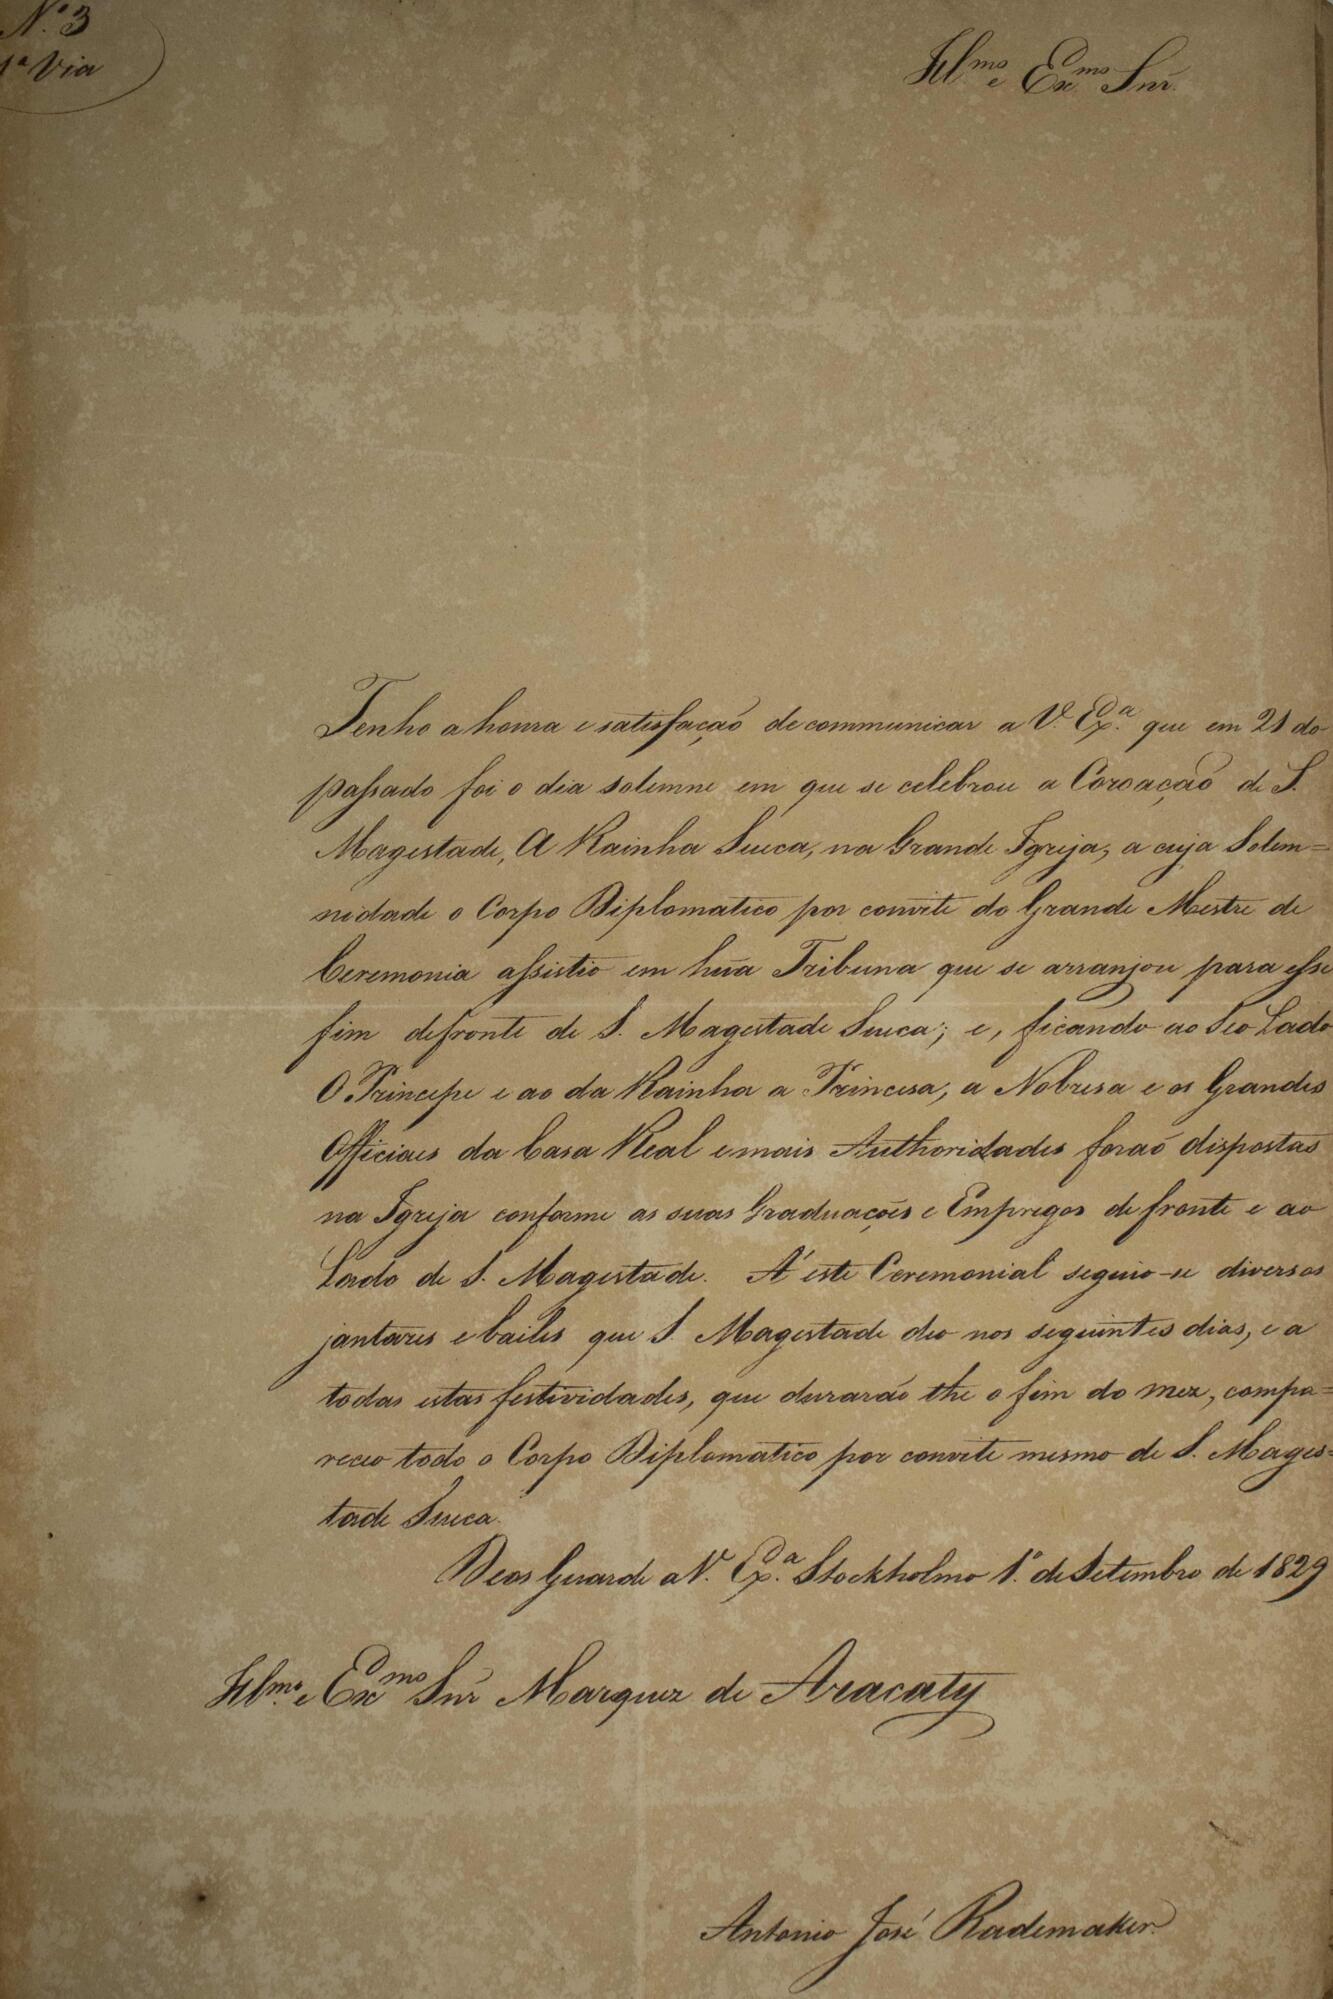 N.º 3
1ª Via
Ill.mo e Ex.mo Snr.
Tenho a honra e satisfação de communicar a V. Ex.ª que em 21 do
passado foi o dia solemne em que se celebrou a Coroação de S.
Magestade, A Rainha Sueca, na Grande Igreja, a cuja Solem=
nidade o Corpo Diplomatico por convite do Grande Mestre de
Ceremonia assistio em hũa Tribuna que se arranjou para esse
fim defronte de S. Magestade Sueca; e, ficando ao Seo Lado
O Principe e ao da Rainha a Princesa, a Nobresa e os Grandes
Officiaes da Casa Real e mais Authoridades foraõ dispostas
na Igreja conforme as suas Graduações e Empregos defronte e ao
Lado de S. Magestade. A' este Ceremonial seguio-se diversos
jantares e bailes que S. Magestade deo nos seguintes dias, e a
todas estas festividades, que durarão the o fim do mez, compa=
receo todo o Corpo Diplomatico por convite mesmo de S. Mages=
tade Sueca.
Deos Guarde a V. Ex.ª Stockholmo 1.º de Setembro de 1829
Ill.mo e Ex.mo Snr Marquez de Aracaty
Antonio José Rademaker